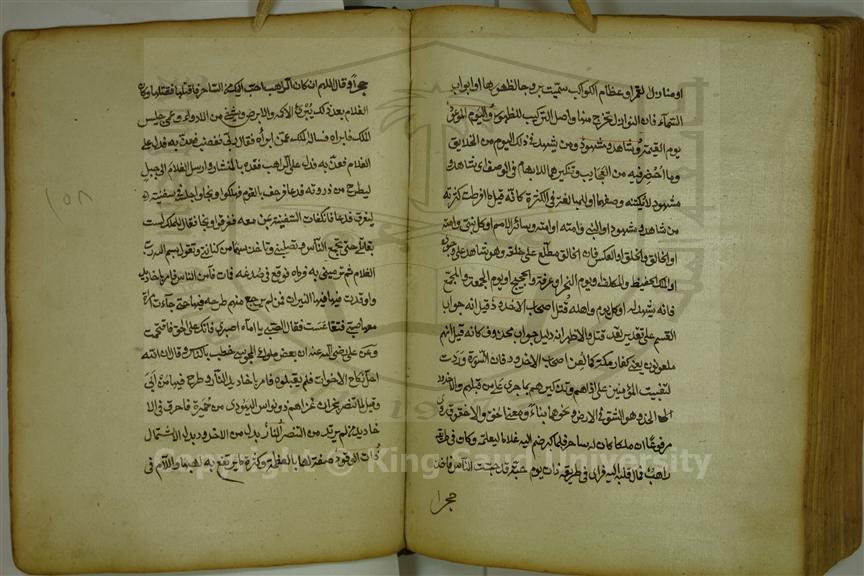 او منازل القمر او عظام الكواكب سميت بروجا لظهورها او ابواب
السماء فان النوازل تخرج منها واصل التركيب للظهور واليوم الموعود
يوم القيمة وشاهد ومشهود ومن يشهد في ذلك اليوم من الخلايق
وما احضر فيه من العجايب وتنكيرهما للابهام في الوصف اي وشاهد و
مشهود لا يكتنه وصفهما او للمبالغة في الكثرة كانه قيل ما افرطت كثرته
من شاهد ومشهود او النبي وامته او امته وسائر الامم او كل نبي وامته
او الخالق والخلق او العكس فان الخالق مطلع على خلقه وهو شاهد على وجوده
او الملك الحفيظ والمكلف او يوم النحر او عرفة والحجيج او يوم الجمعة والمجمع
فانه يشهد له او كل يوم واهله قتل اصحاب الاخدود قيل انه جواب
القسم على تقدير لقد قتل والاظهر انه دليل جواب محذوف كانه قيل انهم
ملعونون يعني كفار مكة كما لعن اصحاب الاخدود فان السورة وردت
لتثبيت المؤمنين على اذاهم وتذكيرهم بما جرى على من قبلهم والاخدود
الخد وهو الشق في الارض ونحوهما بناء ومعنى الخق والاخقوق روي
مرفوعا ان ملكا كان له ساحر فلما كبر ضم اليه غلاما ليعلمه وكان في طريقه
راهب فمال قلبه اليه فراى في طريقه ذات يوم حية قد حبست الناس فاخذ
حجرا
حجرا وقال اللهم ان كان الراهب احب اليك من الساحر فاقتلها فقتلها وكان
الغلام بعد ذلك يبرئ الاكمه والابرص ويشفي من الادواء وعمي جليس
الملك فابراه فسال الملك عمن ابراه فقال ربي فغضب فعذبه فدل على
الغلام فعذبه فدل على الراهب فقده بالمنشار وارسل الغلام الى جبل
ليطرح من ذروته فدعا فرجف بالقوم فهلكوا ونجا واجلسه في سفينة
ليغرق فدعا فانكفات السفينة بمن معه فغرقوا ونجا فقال للملك لست
بقاتلي حتى تجمع الناس وتصلبني وتاخذ سهما من كنانتي وتقول بسم الله رب
الغلام ثم ترميني به فرماه فوقع في صدغه فمات فآمن الناس فامر باخاديد
واوقدت فيها النيران فمن لم يرجع منهم طرحه فيها حتى جاءت امراة
معها صبي فتقاعست فقال الصبي يا اماه اصبري فانك على الحق فاقتحمت
وعن علي رضي الله عنه ان بعض ملوك المجوس خطب بالناس وقال ان الله
احل نكاح الاخوات فلم يقبلوه فامر باخاديد النار وطرح فيها من ابى
وقيل لما تنصر نجران غزاهم ذو نواس اليهودي من حمير فاحرق في الا
خاديد من لم يرتد من التنصر النار بدل من الاخدود بدل الاشتمال
ذات الوقود صفة لها بالعظمة وكثرة ما يرتفع به لهبها واللام في
١٥٨
Copyright © King Saud University